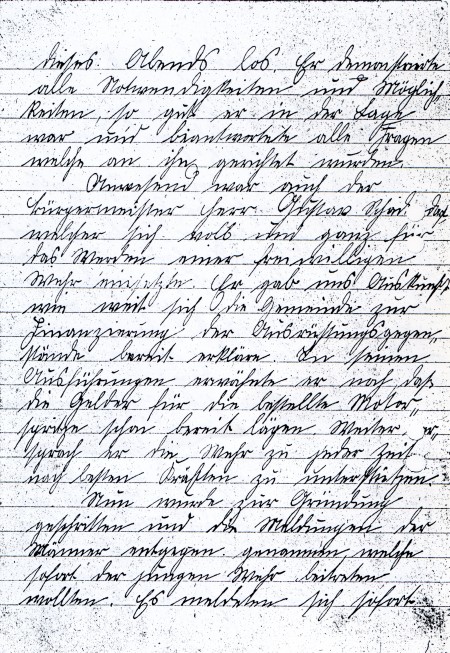 dieses Abends los. Er demonstrierte
alle Notwendigkeiten und Möglich-
keiten, so gut er in der Lage
war und beantwortete alle Fragen
welche an ihn gerichtet wurden.
Anwesend war auch der
Bürgermeister Herr Gustav Schad
welcher sich voll und ganz für
das Werden einer freiwilligen
Wehr einsetzte. Er gab uns Auskunft
wie weit sich die Gemeinde zur
Finanzierung der Ausrüstungsgegen-
stände bereit erkläre. In seinen
Ausführungen erwähnte er noch das
die Gelder für die bestellte Motor-
spritze schon bereit lägen. Weiter er-
sprach er die Wehr zu jeder Zeit
nach besten Kräften zu unterstützen.
Nun wurde zur Gründung
geschritten und die Meldungen der
Männer entgegen genommen, welche
sofort der jungen Wehr beitreten
wollten. Es meldeten sich sofort